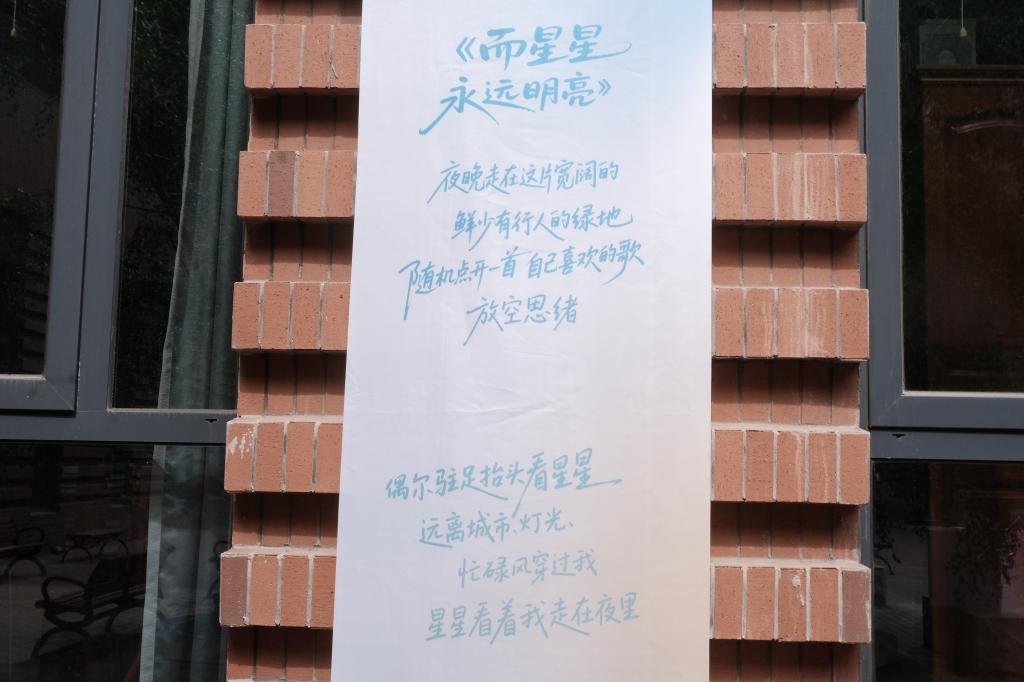 《而星星
永远明亮》
夜晚走在这片宽阔的
鲜少有行人的绿地
随机点开一首自己喜欢的歌
放空思绪
偶尔驻足抬头看星星
远离城市、灯光、
忙碌风穿过我
星星看着我走在夜里